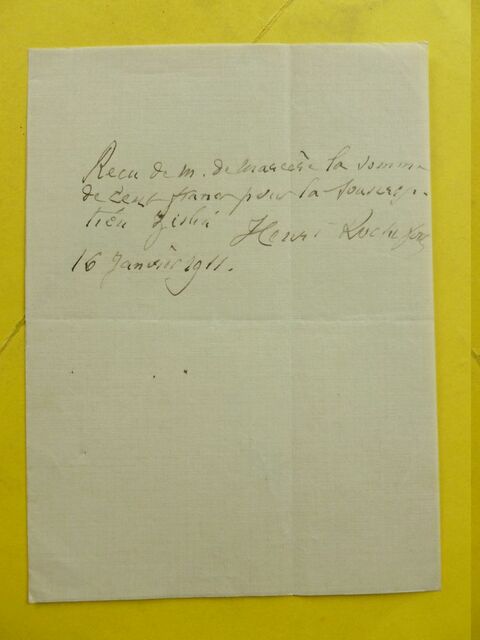 Recu de M. de Marcère la somme
de cent francs pour la souscrip-
tion Henri Rochefort
16 Janvier 1911.